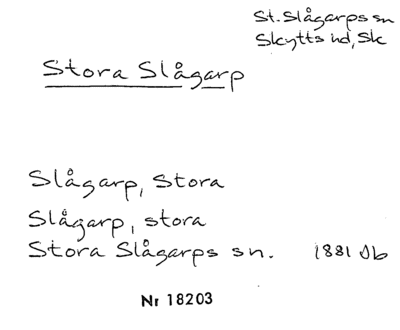 St. Slågarps sn
Skytts hd, Sk
Stora Slågarp
Slågarp, Stora
Slågarp, stora
Stora Slågarps sn. 1881 Db
Nr 18203